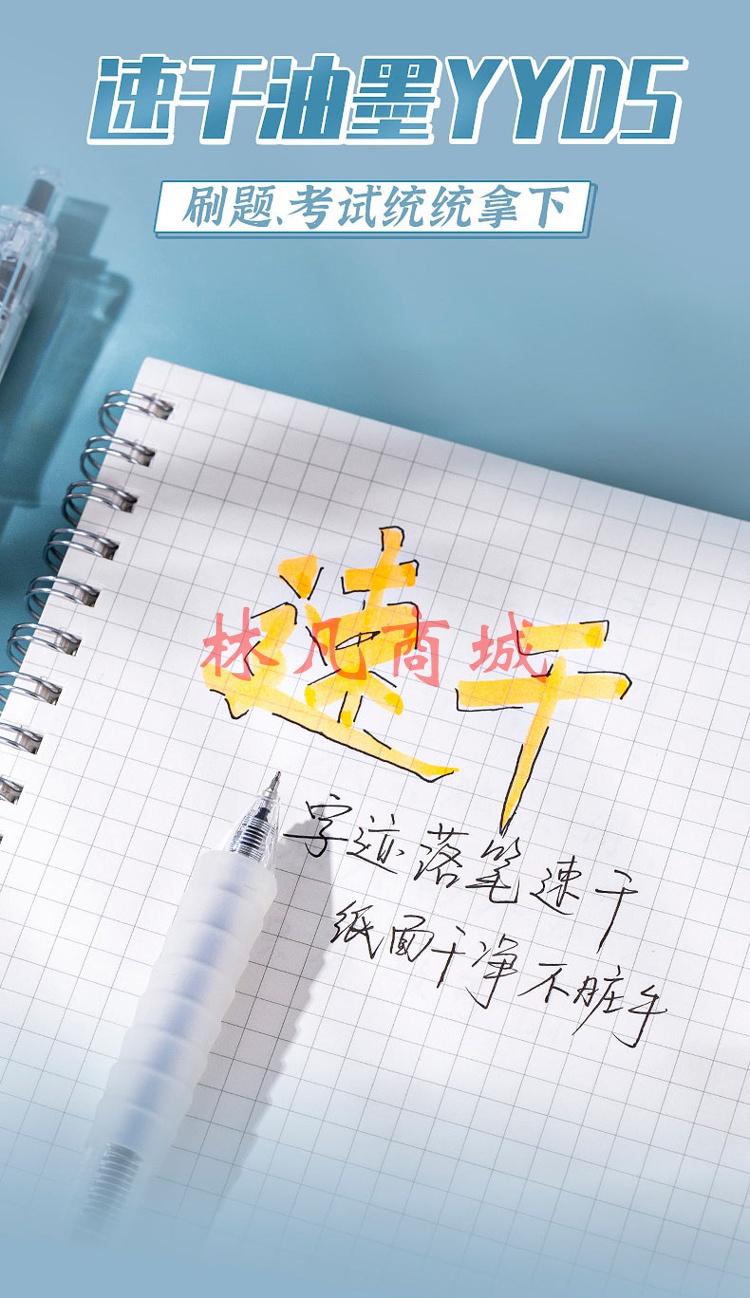 速干油墨YYDS
刷题、考试统统拿下
速干
林凡商城
字迹落笔速干
纸面干净不脏手